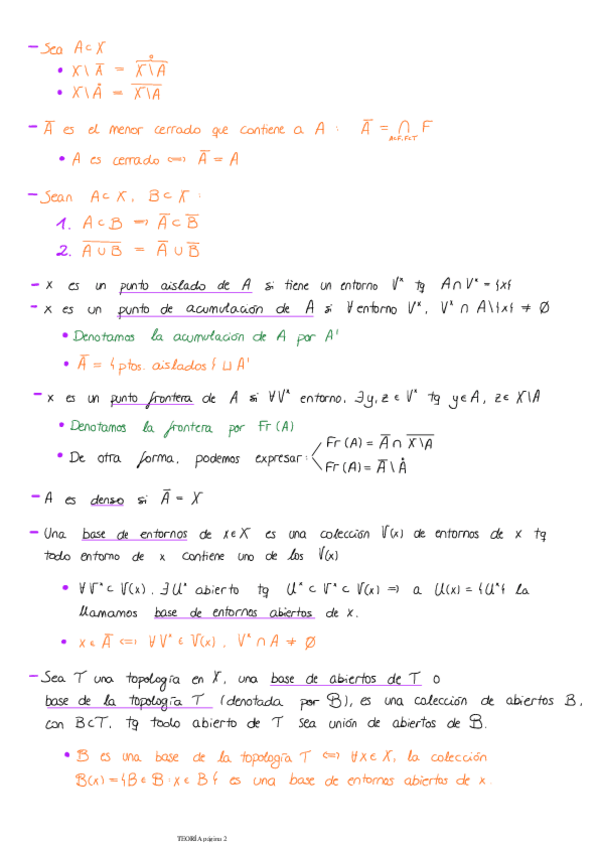 – Sea A⊂X
• X\A̅ = (X\A)° 
• X\Å = \overline{X\A}
– A̅ es el menor cerrado que contiene a A : A̅ = ∩ F
A⊂F, F∈T
• A es cerrado ⟺ A̅ = A
– Sean A⊂X, B⊂X :
1. A⊂B ⟹ A̅⊂B̅
2. \overline{A∪B} = A̅ ∪ B̅
– x es un punto aislado de A si tiene un entorno Vˣ tq A∩Vˣ = {x}
– x es un punto de acumulación de A si ∀ entorno Vˣ, Vˣ ∩ A\{x} ≠ Ø
• Denotamos la acumulación de A por A'
• A̅ = {ptos. aislados} ⊔ A'
– x es un punto frontera de A si ∀Vˣ entorno, ∃y,z ∈ Vˣ tq y∈A, z∈X\A
• Denotamos la frontera por Fr(A)
• De otra forma, podemos expresar:
Fr(A) = A̅ ∩ \overline{X\A}
Fr(A) = A̅\Å
– A es denso si A̅ = X
– Una base de entornos de x∈X es una colección V(x) de entornos de x tq
todo entorno de x contiene uno de los V(x)
• ∀Vˣ⊂V(x), ∃Uˣ abierto tq Uˣ⊂Vˣ⊂V(x) ⟹ a U(x) = {Uˣ} la
llamamos base de entornos abiertos de x.
• x∈A̅ ⟺ ∀Vˣ∈V(x), Vˣ∩A ≠ Ø
– Sea T una topología en X, una base de abiertos de T o
base de la topología T (denotada por B), es una colección de abiertos B,
con B⊂T, tq todo abierto de T sea unión de abiertos de B.
• B es una base de la topología T ⟺ ∀x∈X, la colección
B(x) = {B∈B : x∈B} es una base de entornos abiertos de x.
TEORÍA página 2